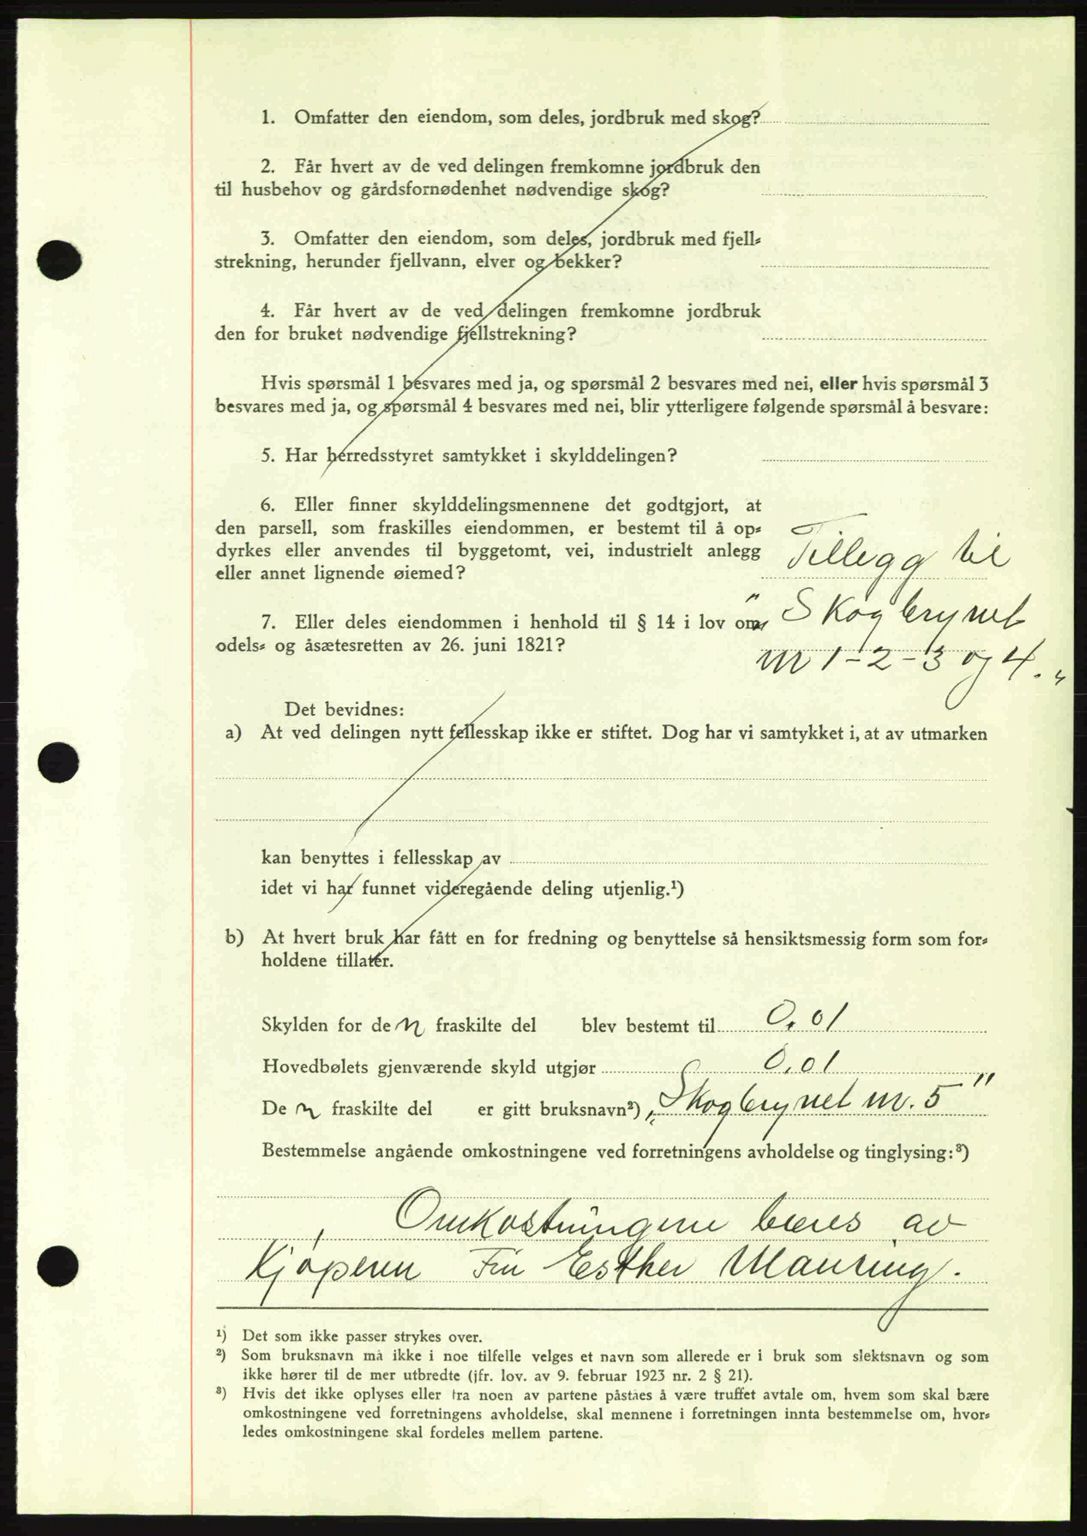 1. Omfatter den eiendom, som deles, jordbruk med skog?
2. Får hvert av de ved delingen fremkomne jordbruk den
til husbehov og gårdsfornødenhet nødvendige skog?
3. Omfatter den eiendom, som deles, jordbruk med fjell=
strekning, herunder fjellvann, elver og bekker?
4. Får hvert av de ved delingen fremkomne jordbruk
den for bruket nødvendige fjellstrekning?
Hvis spørsmål 1 besvares med ja, og spørsmål 2 besvares med nei, eller hvis spørsmål 3
besvares med ja, og spørsmål 4 besvares med nei, blir ytterligere følgende spørsmål å besvare:
5. Har herredsstyret samtykket i skylddelingen?
6. Eller finner skylddelingsmennene det godtgjort, at
den parsell, som fraskilles eiendommen, er bestemt til å op=
dyrkes eller anvendes til byggetomt, vei, industrielt anlegg
eller annet lignende øiemed?
Tillegg til
7. Eller deles eiendommen i henhold til § 14 i lov om
odels= og åsætesretten av 26. juni 1821?
"Skogbrynet
nr 1-2-3 og 4."
Det bevidnes:
a) At ved delingen nytt fellesskap ikke er stiftet. Dog har vi samtykket i, at av utmarken
kan benyttes i fellesskap av
idet vi har funnet videregående deling utjenlig.¹)
b) At hvert bruk har fått en for fredning og benyttelse så hensiktsmessig form som for=
holdene tillater.
Skylden for den fraskilte del blev bestemt til 0.01
Hovedbølets gjenværende skyld utgjør 0,01
Den fraskilte del er gitt bruksnavn²) „Skogbrynet nr. 5"
Bestemmelse angående omkostningene ved forretningens avholdelse og tinglysing:³)
Omkostningene bæres av
Kjøperen Fru Esther Mauring.
¹) Det som ikke passer strykes over.
²) Som bruksnavn må ikke i noe tilfelle velges et navn som allerede er i bruk som slektsnavn og som
ikke hører til de mer utbredte (jfr. lov. av 9. februar 1923 nr. 2 § 21).
³) Hvis det ikke oplyses eller fra noen av partene påståes å være truffet avtale om, hvem som skal bære
omkostningene ved forretningens avholdelse, skal mennene i forretningen innta bestemmelse om, hvor=
ledes omkostningene skal fordeles mellem partene.